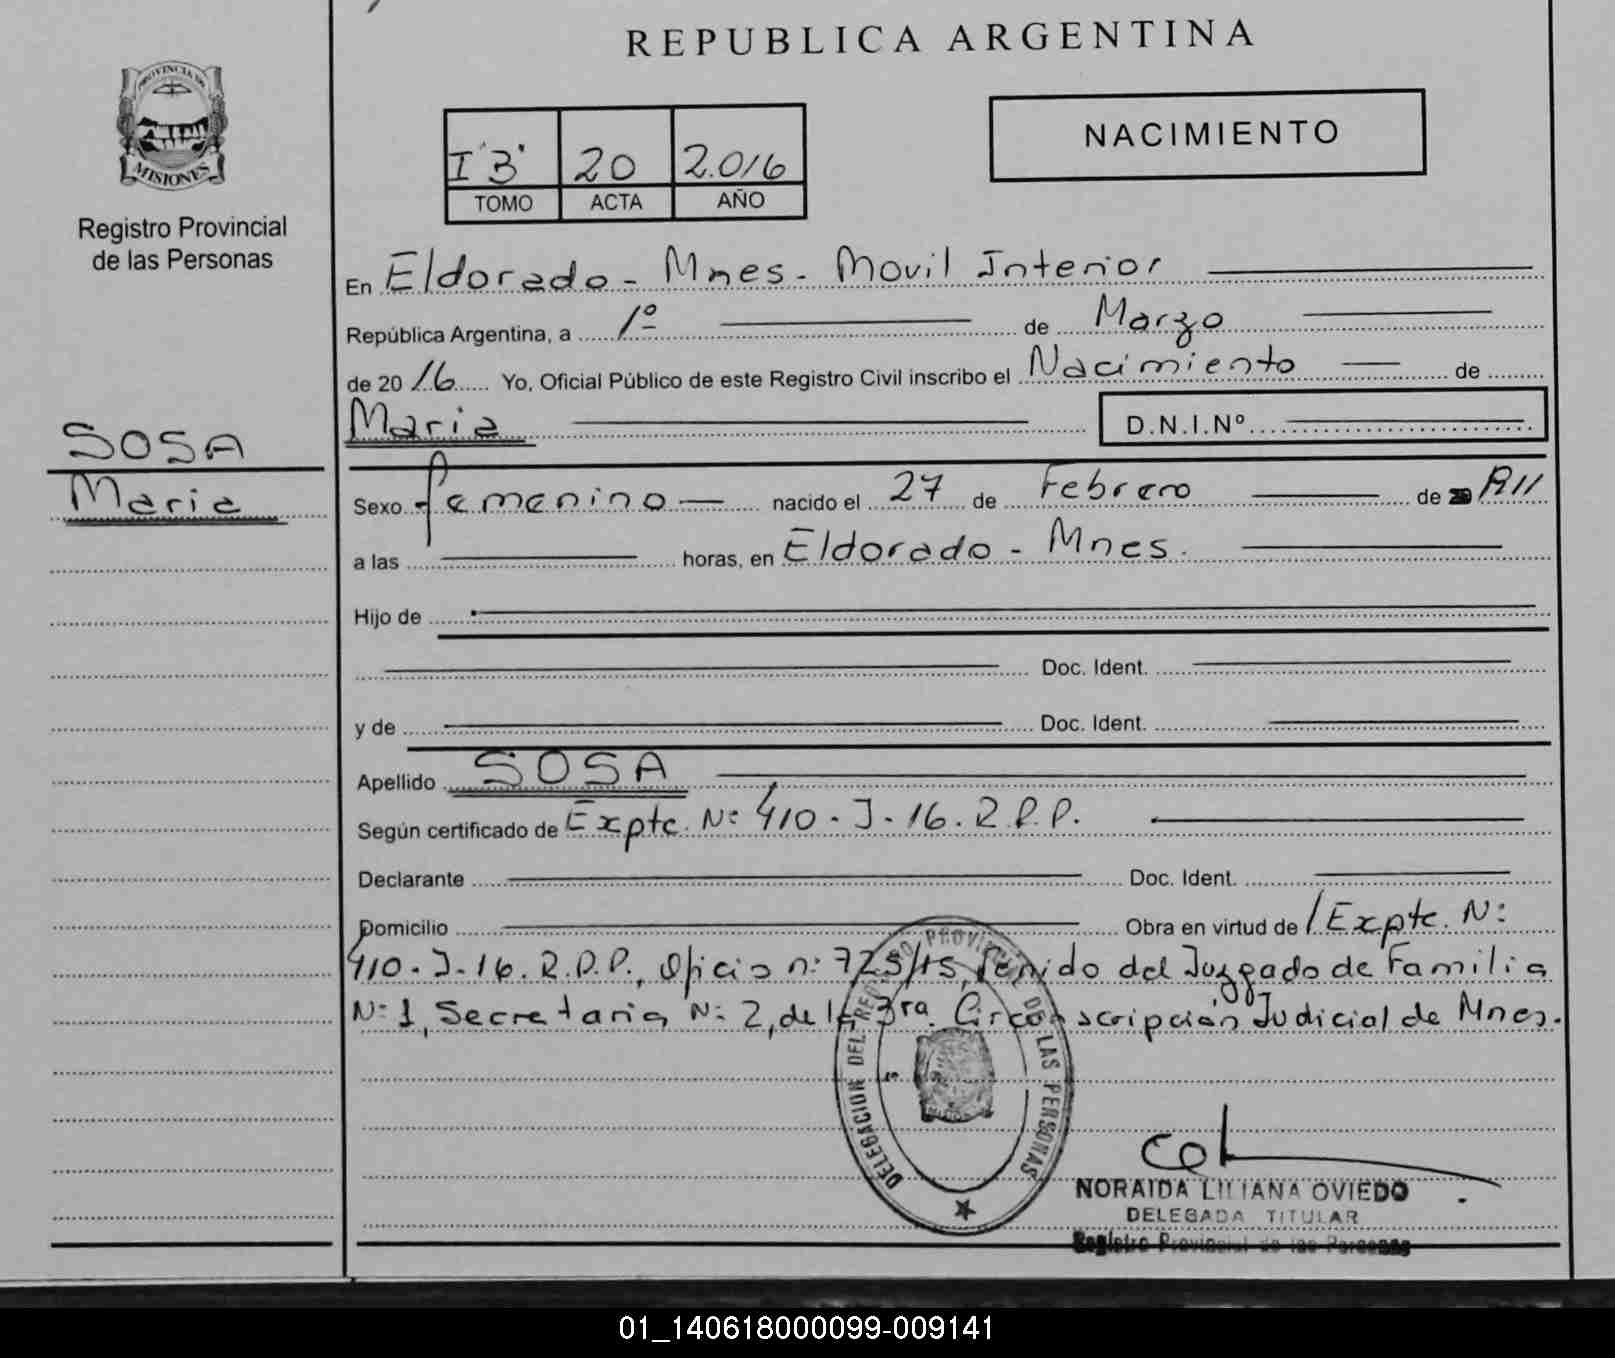 REPUBLICA ARGENTINA
PROVINCIA DE
MISIONES
Registro Provincial
de las Personas
I "B" 20 2.016
TOMO ACTA AÑO
NACIMIENTO
En Eldorado - Mnes - Movil Interior
República Argentina, a 1º de Marzo
de 20 16 Yo, Oficial Público de este Registro Civil inscribo el Nacimiento de
Maria D.N.I.Nº
SOSA
Maria
Sexo femenino nacido el 27 de Febrero de
a las horas, en Eldorado - Mnes.
Hijo de
Doc. Ident.
y de Doc. Ident.
Apellido SOSA
Según certificado de Expte. Nº 410 - J - 16. R.P.P.
Declarante Doc. Ident.
Domicilio Obra en virtud de / Expte. Nº
410 - J - 16. R.P.P., Oficio nº 725/15, venido del Juzgado de Familia
Nº 1, Secretaria Nº 2, de la 3ra. Circunscripción Judicial de Mnes.
DELEGACION DEL REGISTRO PROVINCIAL DE LAS PERSONAS
NORAIDA LILIANA OVIEDO
DELEGADA TITULAR
Registro Provincial de las Personas
01_140618000099-009141